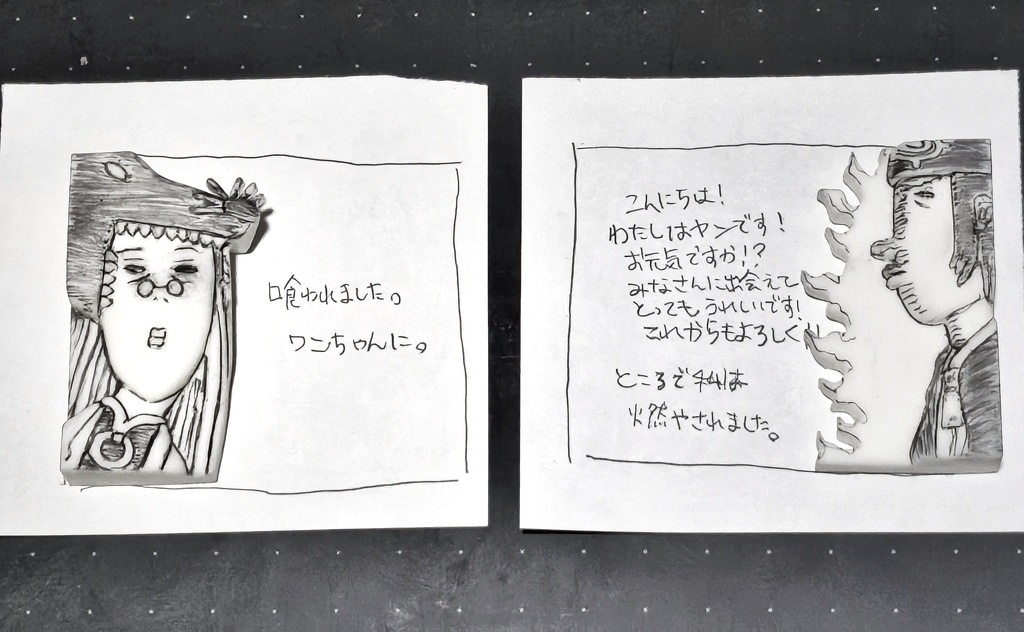 喰われました。
ワンちゃんに。
こんにちは!
わたしはヤンです!
お元気ですか!?
みなさんに出会えて
とってもうれしいです!
これからもよろしく!!
ところで私は
燃やされました。